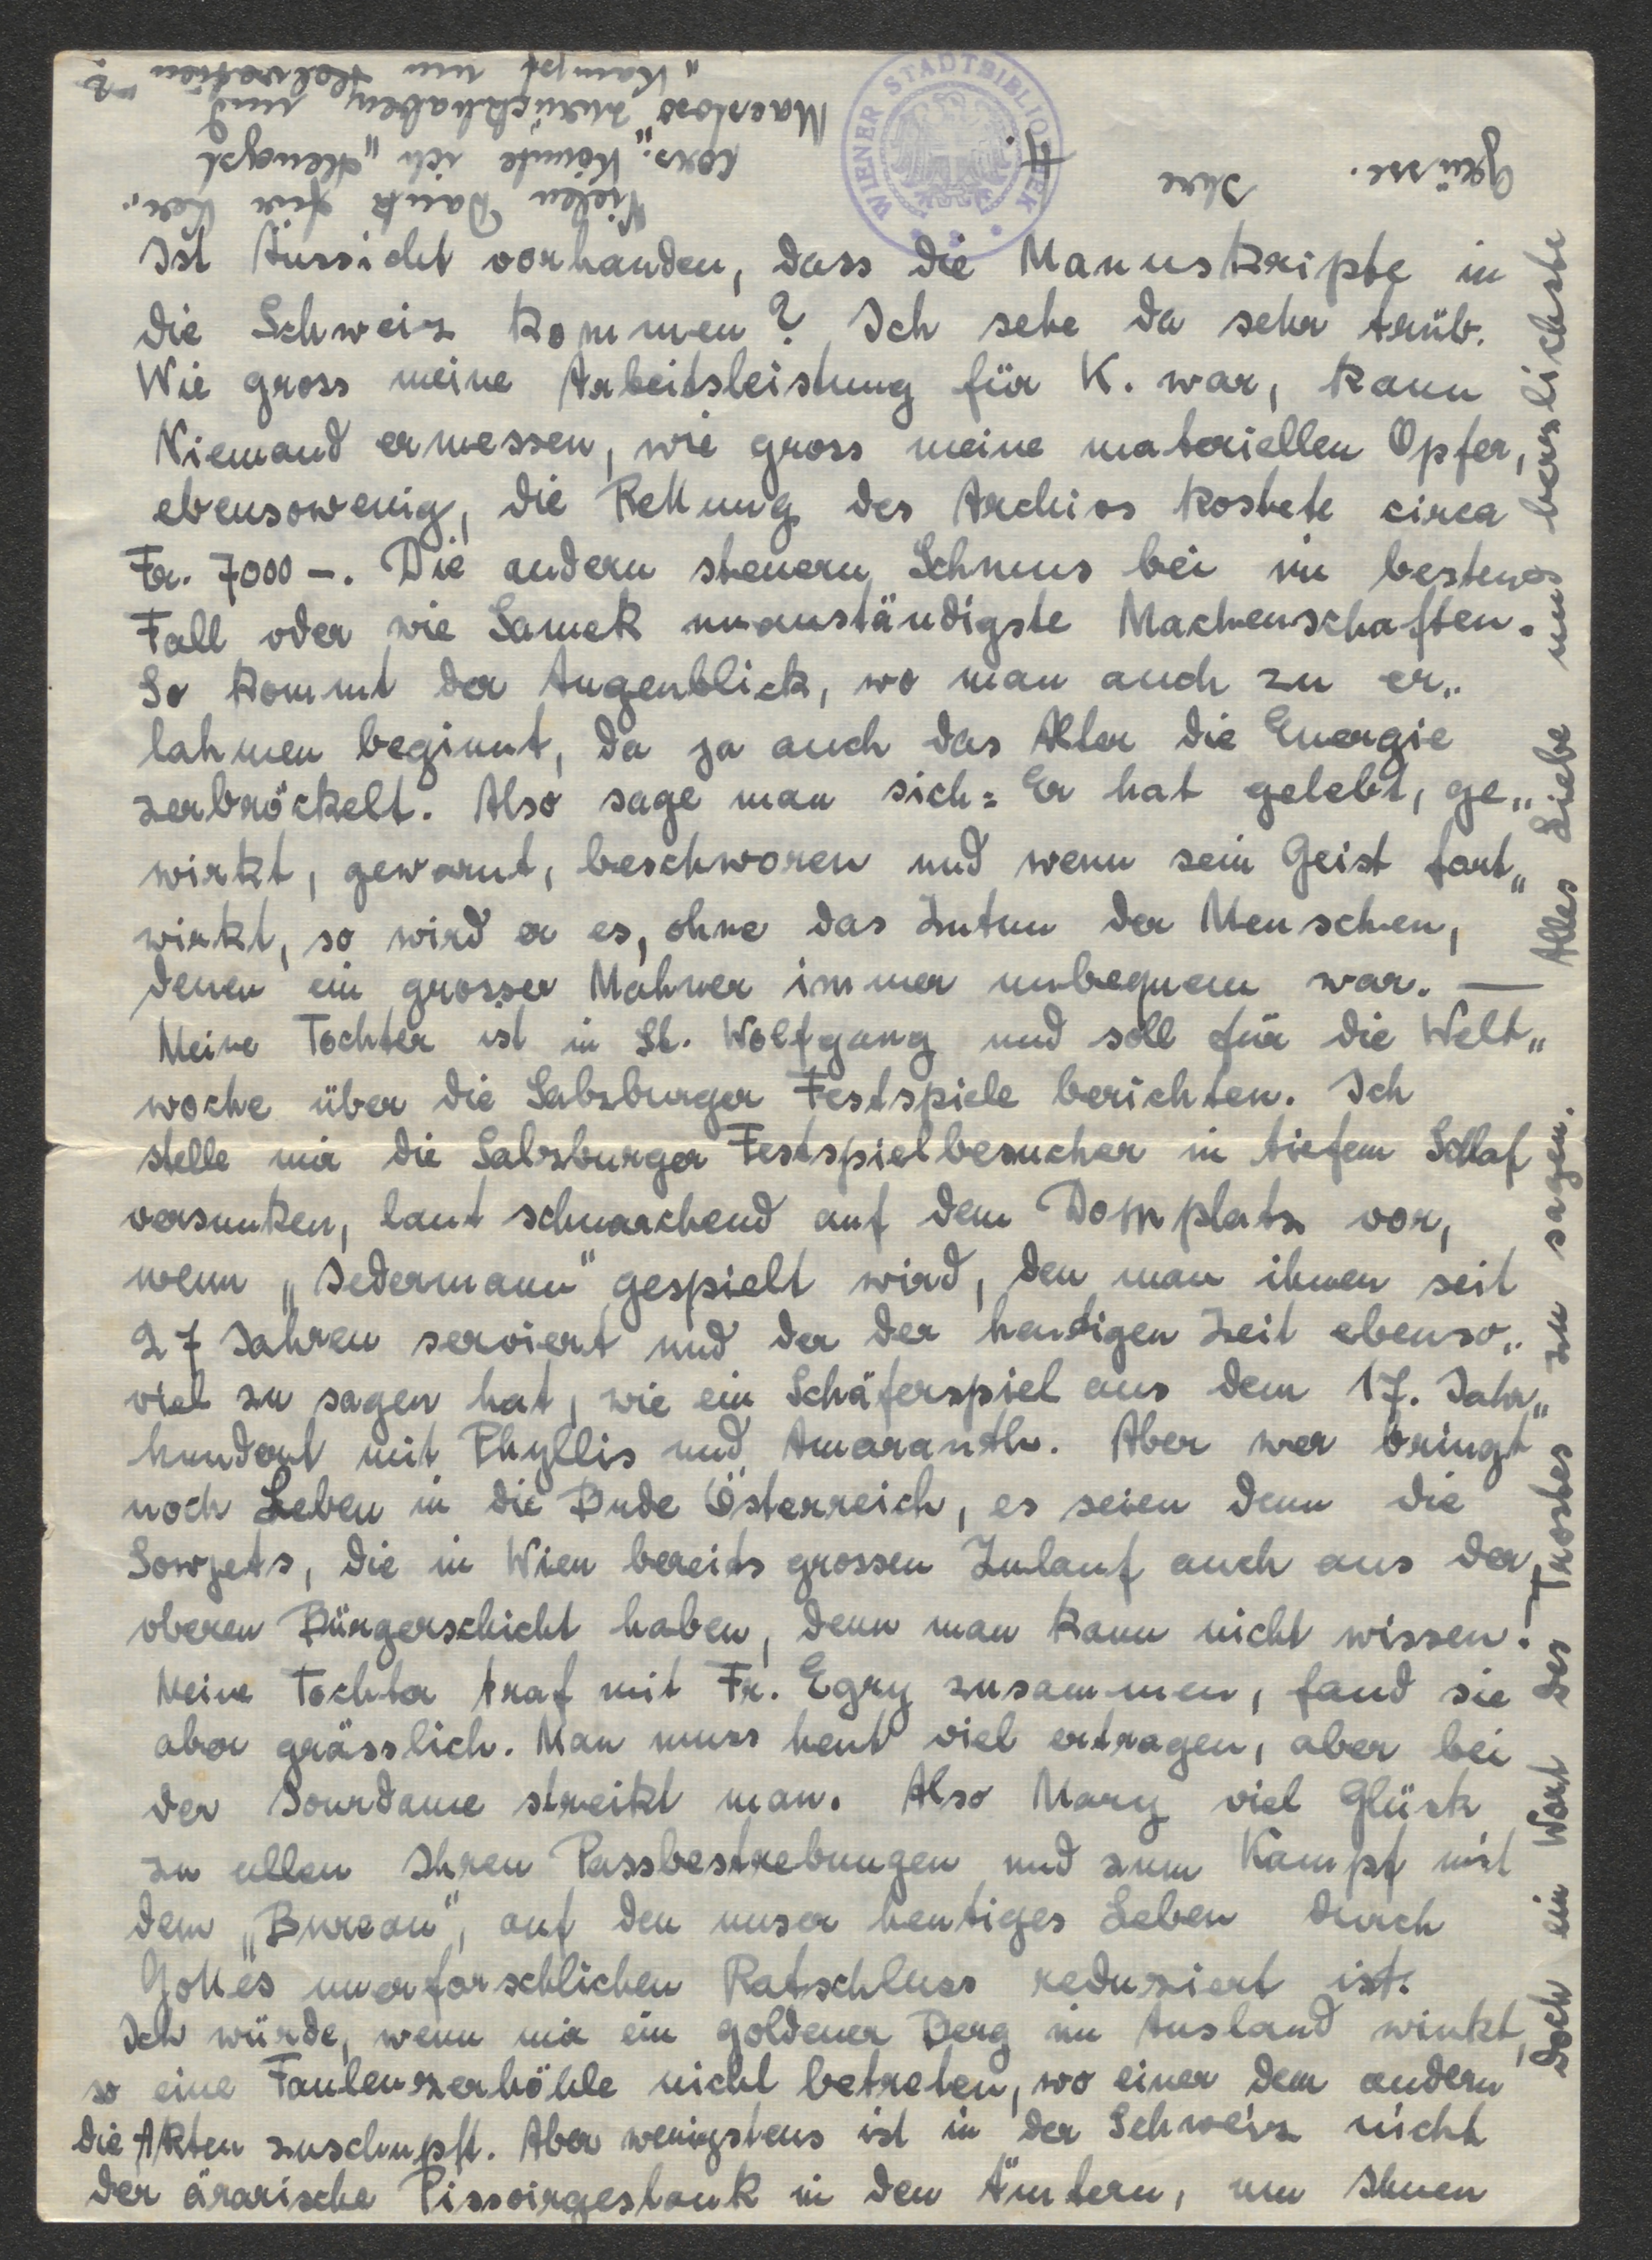 Ist Aussicht vorhanden, dass die Manuskripte in
die Schweiz kommen? Ich sehe da sehr trüb.
Wie gross meine Arbeitsleistung für K. war, kann
Niemand ermessen, wie gross meine materiellen Opfer,
ebensowenig, die Rettung des Archivs kostete circa
Fr. 7000 –. Die andern steuern Schmus bei im besten
Fall oder wie Samek unanständigste Machenschaften.
So kommt der Augenblick, wo man auch zu er„
lahmen beginnt, da ja auch das Alter die Energie
zerbröckelt. Also sage man sich: Er hat gelebt, ge„
wirkt, gewarnt, beschworen und wenn sein Geist fort„
wirkt, so wird er es, ohne das Zutun der Menschen,
denen ein grosser Mahner immer unbequem war. —
Meine Tochter ist in St. Wolfgang und soll für die Welt„
woche über die Salzburger Festspiele berichten. Ich
stelle mir die Salzburger Festspielbesucher in tiefem Schlaf
versunken, laut schnarchend auf dem Domplatz vor,
wenn „Jedermann" gespielt wird, den man ihnen seit
27 Jahren serviert und der der heutigen Zeit ebenso„
viel zu sagen hat, wie ein Schäferspiel aus dem 17. Jahr„
hundert mit Phyllis und Amaranth. Aber wer bringt
noch Leben in die Bude Österreich, es seien denn die
Sowjets, die in Wien bereits grossen Zulauf auch aus der
oberen Bürgerschicht haben, denn man kann nicht wissen! –
Meine Tochter traf mit Fr. Egry zusammen, fand sie
aber grässlich. Man muss heut viel ertragen, aber bei
der Jourdame streikt man. Also Mary viel Glück
zu allen Ihren Passbestrebungen und zum Kampf mit
dem „Bureau", auf den unser heutiges Leben durch
Gottes unerforschlichen Ratschluss reduziert ist.
Ich würde, wenn mir ein goldener Berg im Ausland winkt,
so eine Faulenzerhöhle nicht betreten, wo einer dem andern
die Akten zuschupft. Aber wenigstens ist in der Schweiz nicht
der ärarische Pissoirgestank in den Ämtern, um Ihnen
doch ein Wort des Trostes zu sagen. Alles Liebe und herzlichste
Grüsse. Ihre H.
Vielen Dank für Ker„
cors. Könnte ich „Hengst
Maestoso" zurückhaben, und
„Kampf um
WIENER STADTBIBLIOTHEK